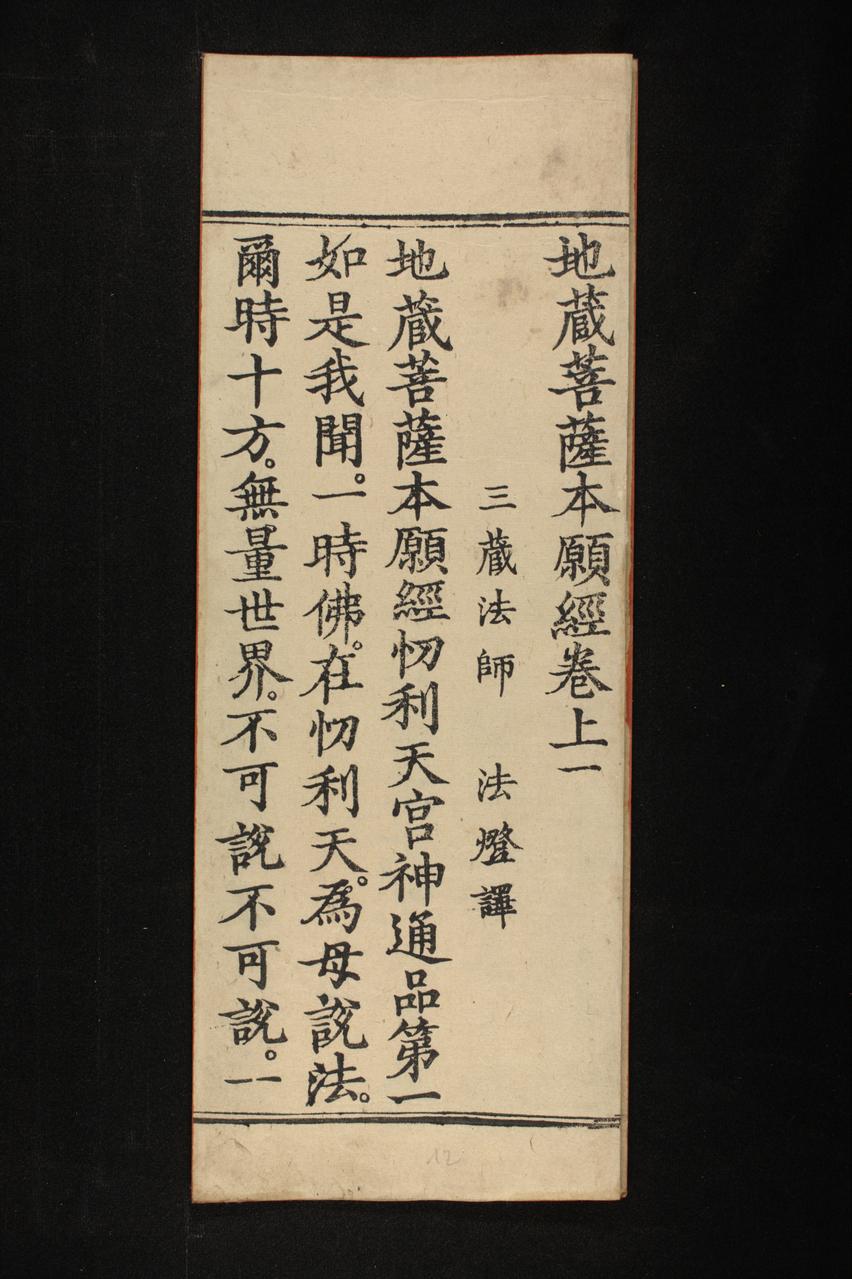 地藏菩薩本願經卷上一
三藏法師　法燈譯
地藏菩薩本願經忉利天宮神通品第一
如是我聞。一時佛。在忉利天。為母說法。
爾時十方。無量世界。不可說不可說。一
12